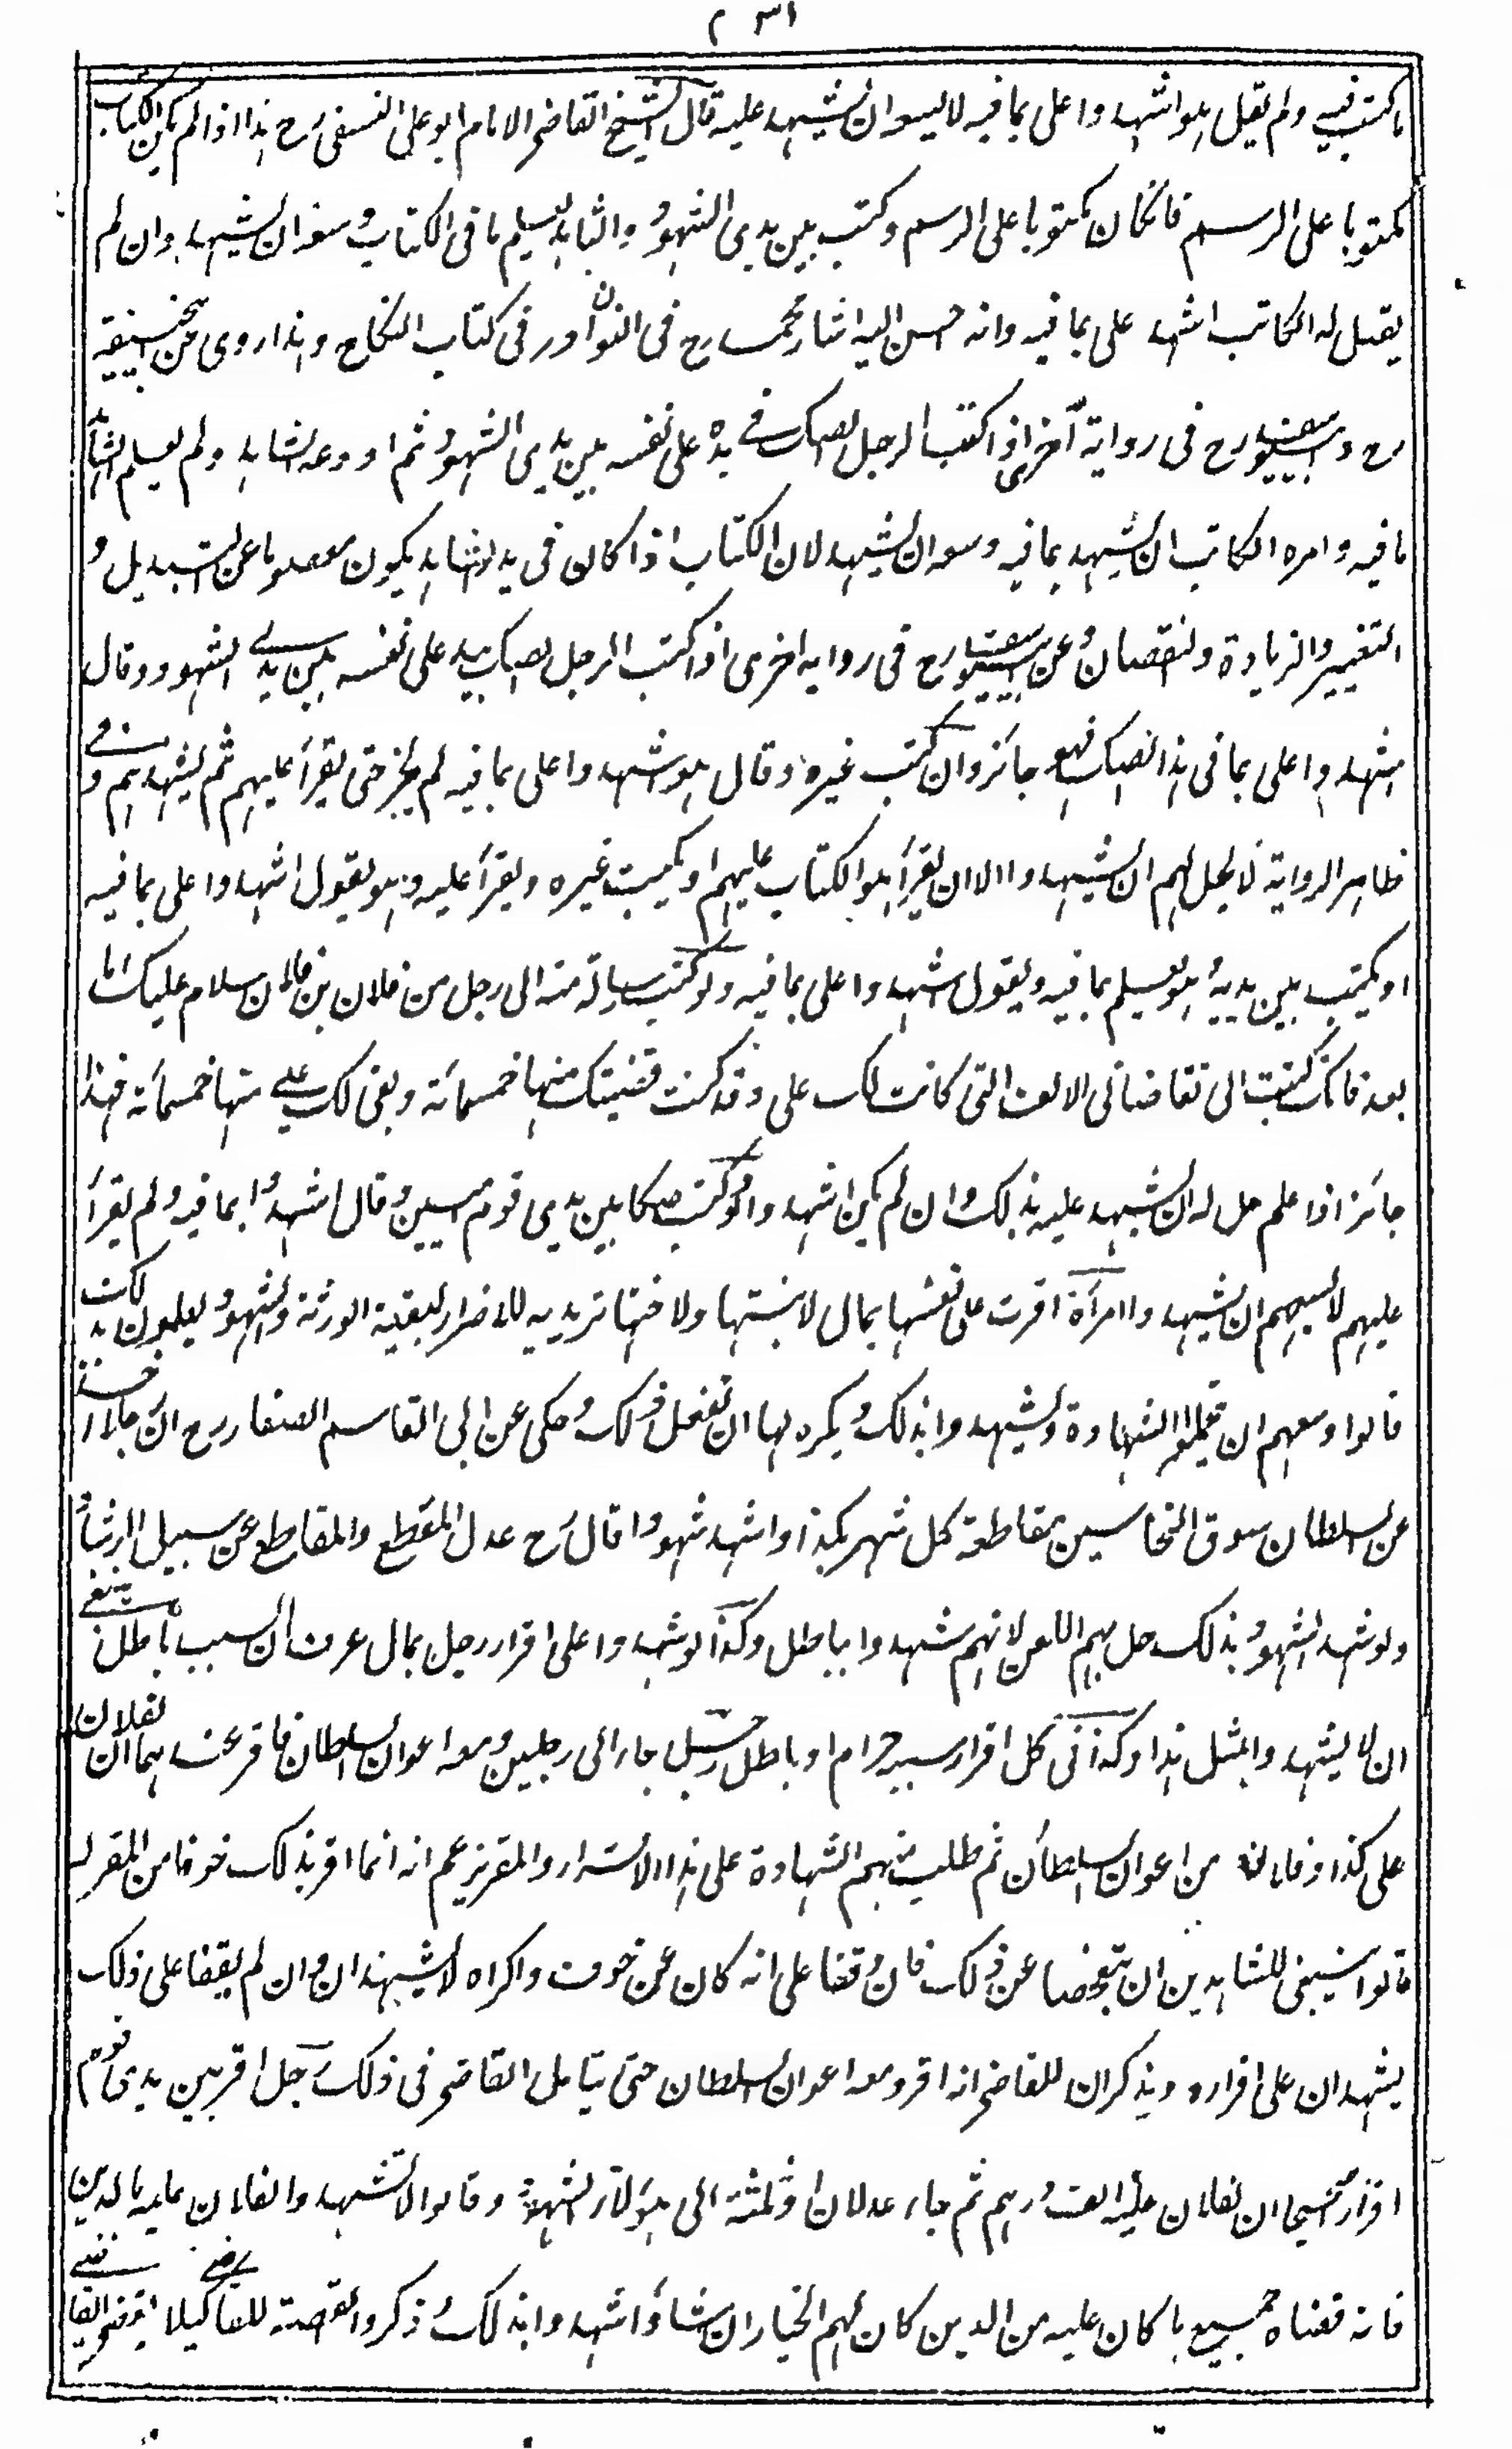 ما كتب فيه ولم يقل هو اشهدوا على بما فيه لا يسعه ان يشهد عليه قال الشيخ القاضى الامام ابو على النسفى رح هذا اذا لم يكن الكتاب
مكتوبا على الرسم فان كان مكتوبا على الرسم وكتب بين يدى الشهود والشاهد يعلم ما فى الكتاب وسعه ان يشهد وان لم
يقل له الكاتب اشهد على بما فيه وانه حسن اليه اشار محمد رح فى النوادر فى كتاب النكاح وهذا روى عن ابيحنيفة
رح وعن ابى يوسف رح فى رواية اخرى اذا كتب الرجل الصك فى يده على نفسه بين يدى الشهود ثم اودعه الشاهد ولم يعلم الشاهد
ما فيه وامره الكاتب ان يشهد بما فيه وسعه ان يشهد لان الكتاب اذا كان فى يد الشاهد يكون معصوما عن التبديل و
التغيير والزيادة والنقصان وعن ابى يوسف رح فى رواية اخرى اذا كتب الرجل الصك بيده على نفسه بين يدى الشهود وقال
اشهدوا على بما فى هذا الصك فهو جائز وان كتب غيره وقال هو اشهدوا على بما فيه لم يجز حتى يقرأ عليهم ثم يشهدهم وفى
ظاهر الرواية لا يحل لهم ان يشهدوا الا ان يقرأ هو الكتاب عليهم او يكتب غيره ويقرأ عليه وهو يقول اشهدوا على بما فيه
او يكتب بين يديه وهو يعلم بما فيه ويقول اشهدوا على بما فيه ولو كتب رسالة منه الى رجل من فلان بن فلان سلام عليك اما
بعد فانك كتبت الى تقاضانى الالف التى كانت لك على وقد كنت قضيتك منها خمسمائة وبقى لك على منها خمسمائة فهذا
جائز اذا علم حل له ان يشهد عليه بذلك وان لم يكن اشهد ولو كتب صكا بين يدى قوم اميين وقال اشهدوا بما فيه ولم يقرأ
عليهم لا يسعهم ان يشهدوا امرأة اقرت على نفسها بمال لابنتها ولاختها تريد به الاضرار لبقية الورثة والشهود يعلمون بذلك
قالوا وسعهم ان يتحملوا الشهادة ويشهدوا بذلك ويكره لها ان تفعل ذلك وحكى عن ابى القاسم الصفار رح ان رجلا اخذ
عن السلطان سوق النخاسين مقاطعة كل شهر بكذا واشهد شهودا قال رح عدل المقطع والمقاطع عن سبيل الرشاد
ولو شهد الشهود بذلك حل بهم اللعن لانهم شهدوا بباطل وكذا لو شهدوا على اقرار رجل بمال عرف ان السبب باطل ينبغى
ان لا يشهدوا بمثل هذا وكذا فى كل اقرار سببه حرام او باطل رجل جاء الى رجلين ومعه اعوان السلطان فاقر عندهما ان لفلان
على كذا وفلان من اعوان السلطان ثم طلب منهم الشهادة على هذا الاقرار والمقر يزعم انه انما اقر بذلك خوفا من المقر له
قالوا ينبغى للشاهدين ان يتفحصا عن ذلك فان وقفا على انه كان عن خوف واكراه لا يشهدان وان لم يقفا على ذلك
يشهدان على اقراره ويذكران للقاضى انه اقر ومعه اعوان السلطان حتى يتامل القاضى فى ذلك رجل اقر بين يدى قوم
اقرارا صحيحا ان لفلان عليه الف درهم ثم جاء عدلان او ثلثة الى هؤلاء الشهود وقالوا لا تشهدوا لفلان عليه بالدين
فانه قضاه جميع ما كان عليه من الدين كان لهم الخيار ان شاؤا شهدوا بذلك وذكروا القصة للقاضى كيلا يقضى القاضى